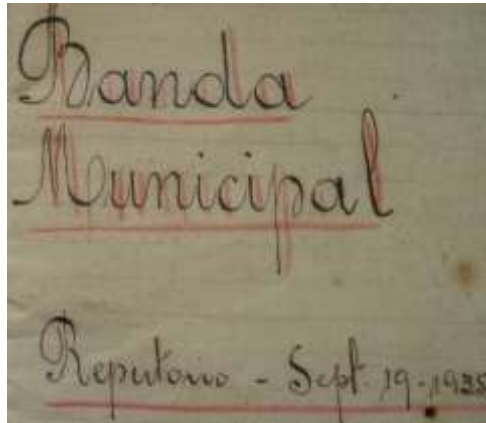 Banda
Municipal
Repertorio - Sept. 19-1935